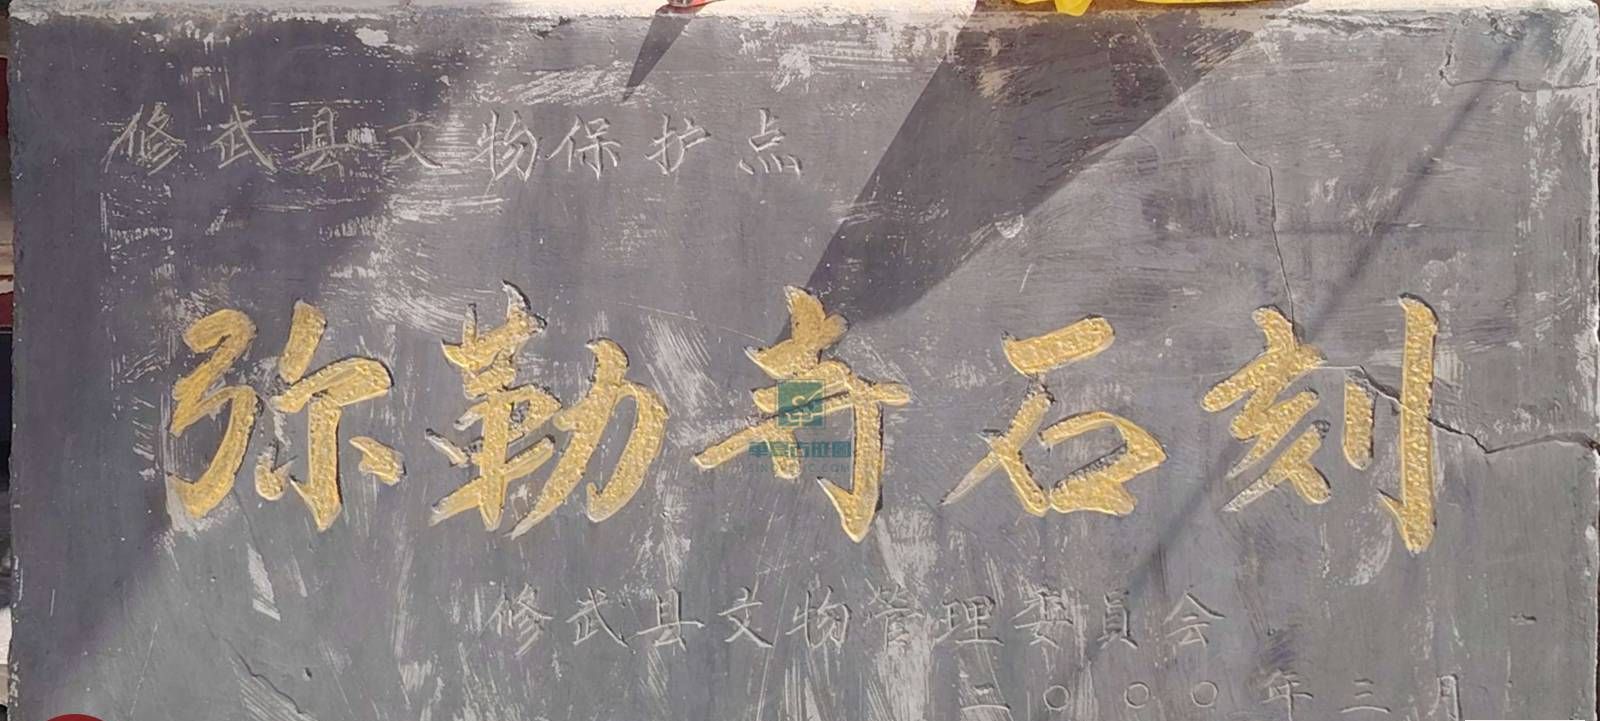 修武县文物保护点
弥勒寺石刻
修武县文物管理委員会
二〇〇〇年三月